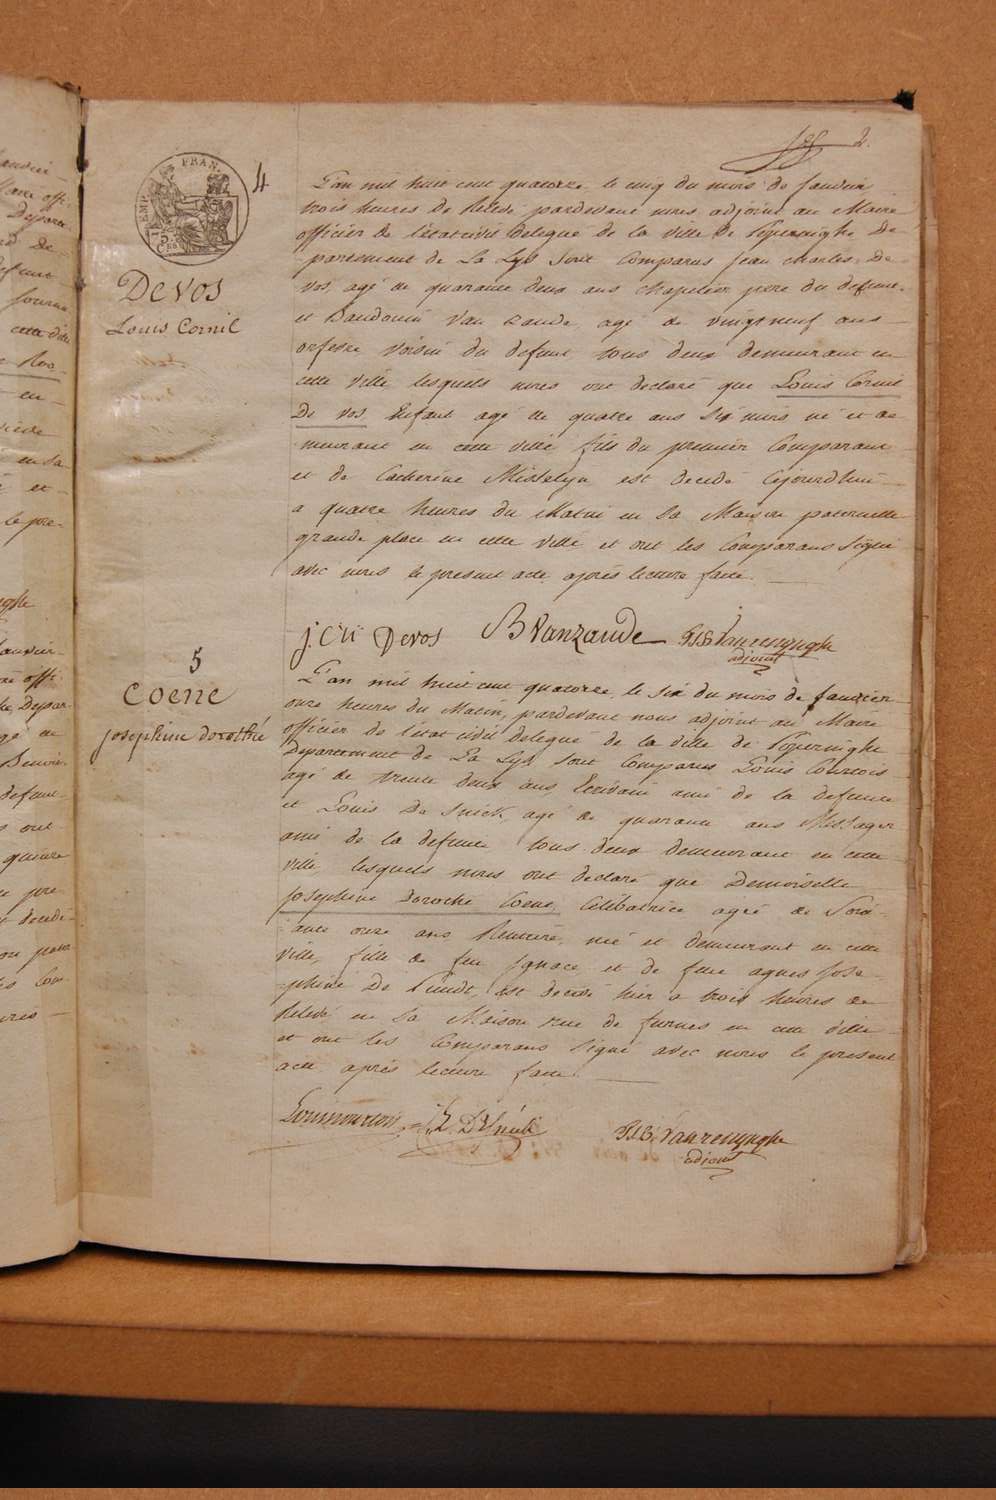 2.
4
Devos
Louis Cornil
L'an mil huit cent quatorze, le cinq du mois de Janvier
trois heures de Relevé pardevant nous adjoint au Maire
officier de l'état civil delegué de la ville de Poperinghe De-
partement de La Lys sont Comparus Jean Charles De-
vos agé de quarante deux ans chapelier pere du defunt
et Baudouin Van Zande, agé de vingtneuf ans
orfevre voisin du defunt tous deux demeurant en
cette ville lesquels nous ont declaré que Louis Cornil
De vos Enfant agé de quatre ans six mois né et de-
meurant en cette ville fils du premier Comparant
et de Catherine Misselyn est decedé Cejourdhui
a quatre heures du Matin en sa Maison paternelle
grande place en cette ville et ont les Comparans Signé
avec nous le present acte après lecture faite.
j. Devos BVanzande Vanrenynghe
adjoint
5
Coene
josephine dorothé
L'an mil huit cent quatorze, le six du mois de Janvier
onze heures du Matin, pardevant nous adjoint au Maire
officier de l'état civil delegué de la ville de Poperinghe
Département de La Lys sont Comparus Louis Courtois
agé de trente deux ans Ecrivain ami de la defunte
et Louis De Snick, agé de quarante ans Messager
ami de la defunte tous deux demeurant en cette
ville lesquels nous ont declaré que Demoiselle
Josephine Dorothé Coene, Célibatrice agée de Soix-
ante onze ans Rentiere, née et demeurant en cette
ville, fille de feu Ignace et de feue agnes Jose-
phine De est decedé hier a trois heures de
Relevé en sa Maison rue de furnes en cette ville
et ont les Comparans Signé avec nous le present
acte après lecture faite.
Louis Courtois L. DeSnick Vanrenynghe
adjoint